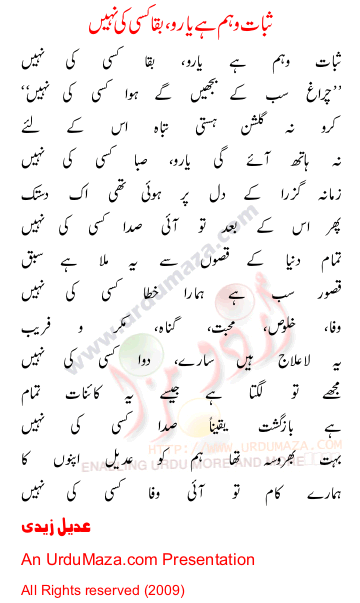 ثبات وہم ہے یارو، بقا کسی کی نہیں
ثبات وہم ہے یارو، بقا کسی کی نہیں
"چراغ سب کے بجھیں گے ہوا کسی کی نہیں"
کرو نہ گلشن ہستی تباہ اس کے لئے
نہ ہاتھ آئے گی یارو، صبا کسی کی نہیں
زمانہ گزرا کے دل پر ہوئی تھی اک دستک
پھر اس کے بعد تو آئی صدا کسی کی نہیں
تمام دنیا کے قصوں سے یہ ملا ہے سبق
قصور سب ہے ہمارا خطا کسی کی نہیں
وفا، خلوص، محبت، گناہ، مکر و فریب
یہ لاعلاج ہیں سارے، دوا کسی کی نہیں
مجھے تو لگتا ہے جیسے یہ کائنات تمام
ہے بازگشت یقیناً صدا کسی کی نہیں
بہت بھروسہ تھا ہم کو عدیل اپنوں کا
ہمارے کام تو آئی وفا کسی کی نہیں
عدیل زیدی
An UrduMaza.com Presentation
All Rights reserved (2009)
www.urdumaza.com
اردو مزا
HTTP://WWW.URDUMAZA.COM
ENABLING URDU MORE AND MORE